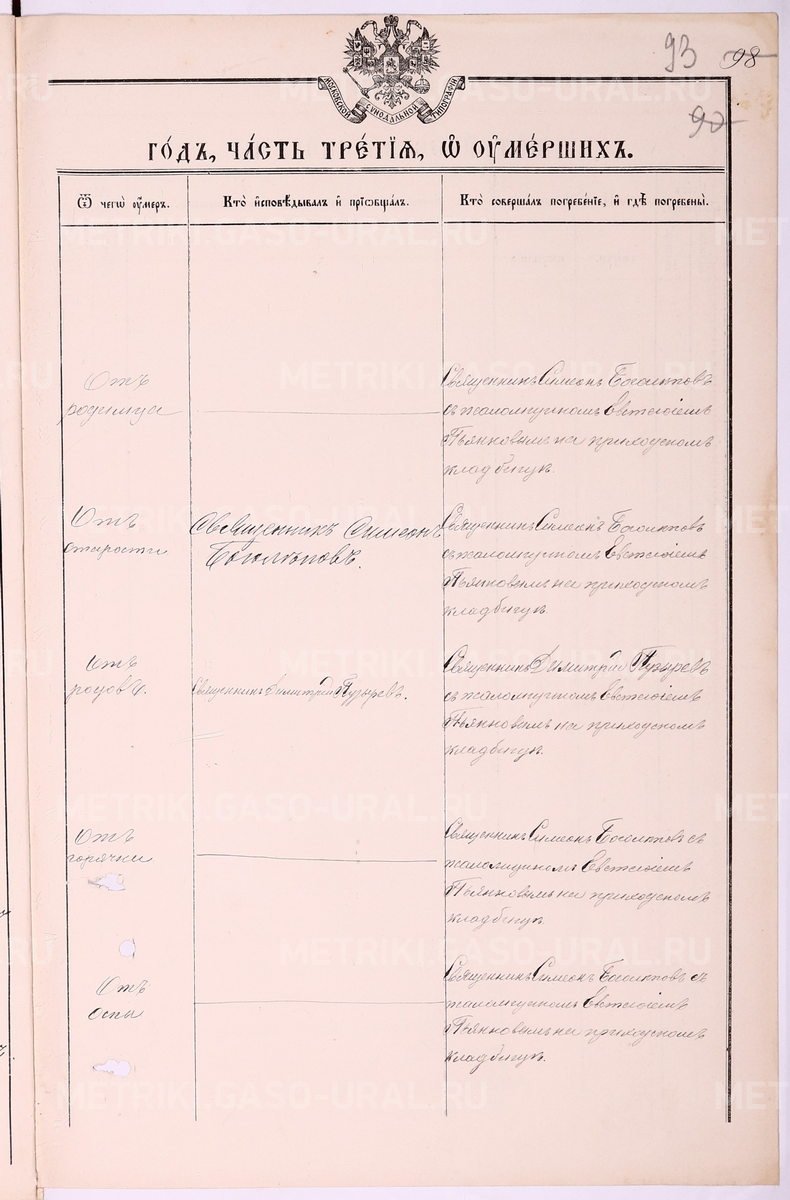 93
98
90
МОСКОВСКОЙ СѴНОДАЛЬНОЙ ТИПОГРАФІИ
ГО́ДЪ, ЧА́СТЬ ТРЕ́ТІѦ, Ѡ҆ ОУ҆МЕ́РШИХЪ.
Ѿ чегѡ̀ оу҆́меръ.
Кто̀ и҆сповѣ́дывалъ и҆ прїѡбща́лъ.
Кто̀ соверша́лъ погребе́нїе, и҆ гдѣ̀ погребены̀.
Отъ
родимца
Священникъ Симеонъ Боголѣповъ
съ псаломщикомъ Евгеніемъ
Пьянковымъ на приходскомъ
кладбищѣ.
Отъ
старости
Священникъ Симеонъ
Боголѣповъ.
Священникъ Симеонъ Боголѣповъ
съ псаломщикомъ Евгеніемъ
Пьянковымъ на приходскомъ
кладбищѣ.
Отъ
родовъ.
Священникъ Димитрій Пузыревъ.
Священникъ Димитрій Пузыревъ
съ псаломщикомъ Евгеніемъ
Пьянковымъ на приходскомъ
кладбищѣ.
Отъ
горячки
Священникъ Симеонъ Боголѣповъ съ
псаломщикомъ Евгеніемъ
Пьянковымъ на приходскомъ
кладбищѣ.
Отъ
оспы
Священникъ Симеонъ Боголѣповъ съ
псаломщикомъ Евгеніемъ
Пьянковымъ на приходскомъ
кладбищѣ.
METRIKI.GASO-URAL.RU